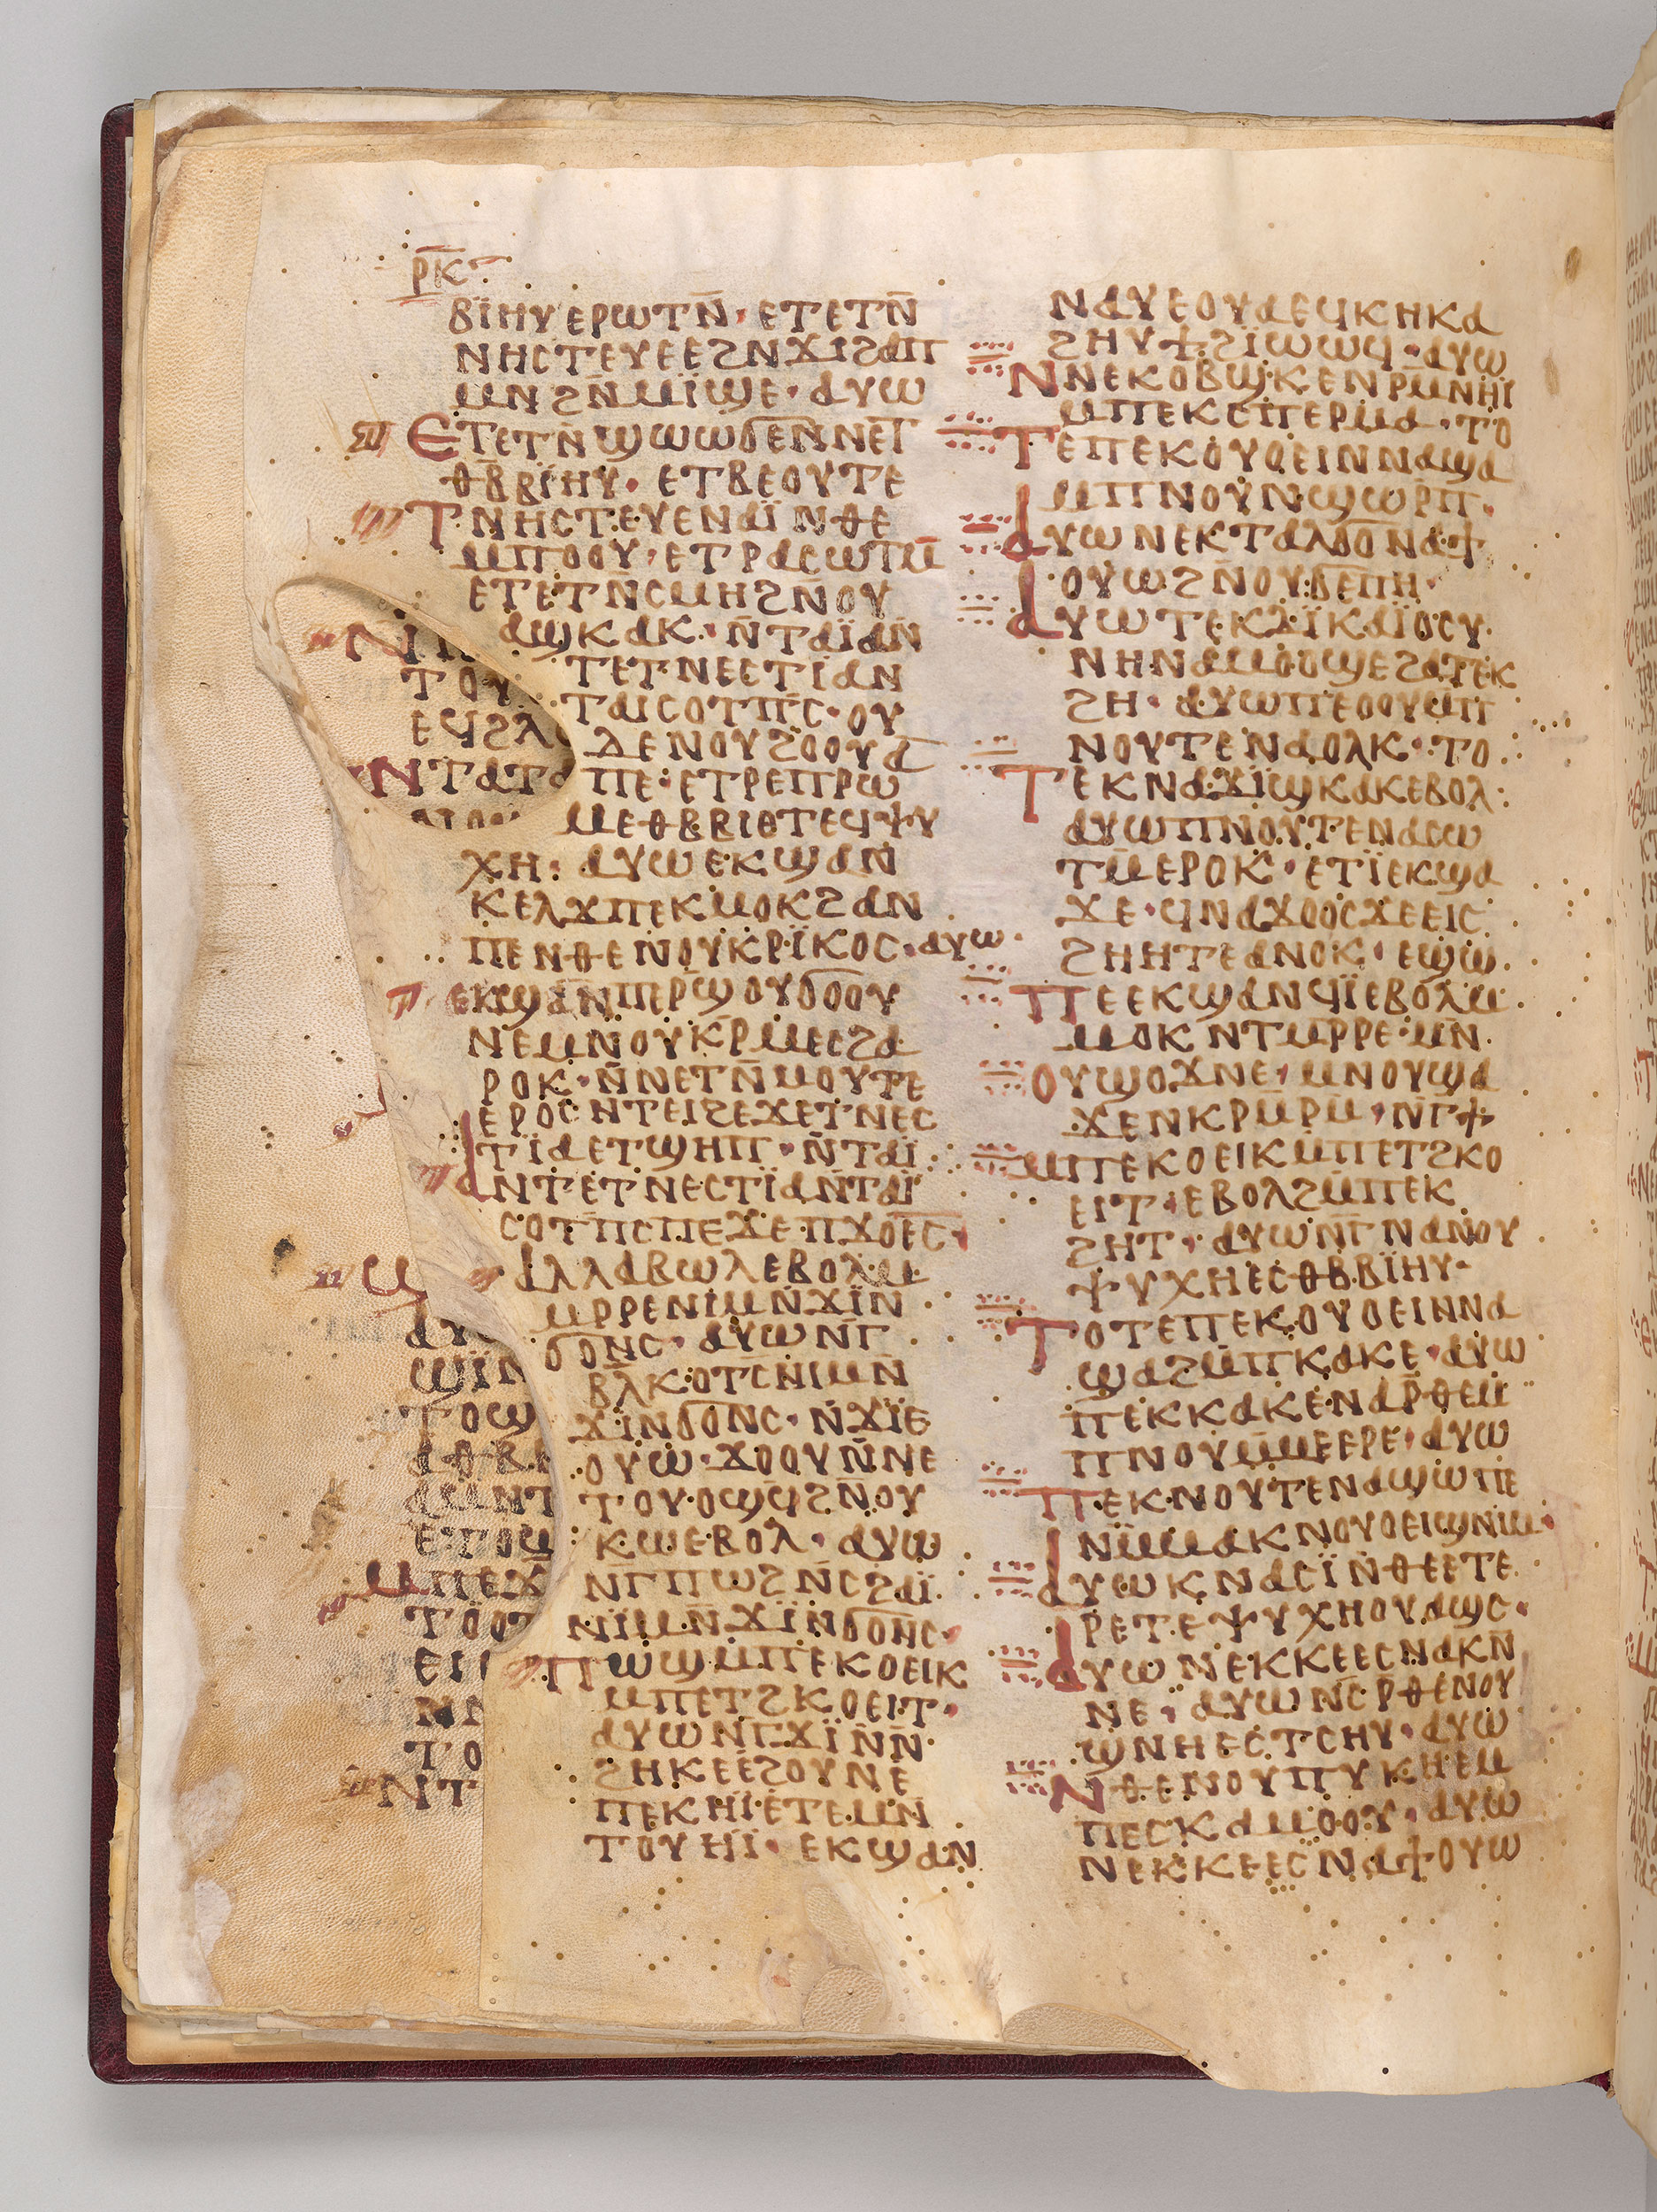 ⲣⲕ
ⲃⲓ̈ⲏⲩⲉⲣⲱⲧⲛ̄· ⲉⲧⲉⲧⲛ̄
ⲛⲏⲥⲧⲉⲩⲉⲉϩⲛϫⲓϩⲁⲡ
ⲙⲛϩⲛ̄ⲙⲓ̈ϣⲉ· ⲁⲩⲱ
ⲉⲧⲉⲧⲛ̄ϣⲱⲱϭⲉⲛⲛⲉⲧ
ⲑⲃ̄ⲃⲓ̈ⲏⲩ· ⲉⲧⲃⲉⲟⲩⲧⲉ
ⲧⲛⲏⲥⲧⲉⲩⲉⲛⲁⲓ̈ⲛⲑⲉ
ⲙⲡⲟⲟⲩ· ⲉⲧⲣⲁⲥⲱⲧⲙ̄
ⲉⲧⲉⲧⲛⲥⲙⲏϩⲛ̄ⲟⲩ
ⲁϣⲕⲁⲕ· ⲛ̄ⲧⲁⲓ̈ⲁⲛ
ⲧⲉⲧⲛⲉⲉⲧⲓⲁⲛ
ⲧⲁⲓⲥⲟⲧⲡ̄ⲥ· ⲟⲩ
ⲇⲉⲛⲟⲩϩⲟⲟⲩⲁ
ⲡⲉ· ⲉⲧⲣⲉⲡⲣⲱ
ⲙⲉⲑⲃⲃⲓⲑⲧⲉϥⲯⲩ
ⲭⲏ: ⲁⲩⲱⲉⲕϣⲁⲛ
ⲕⲉⲗϫⲡⲉⲕⲙⲟⲕϩⲁⲛ
ⲡⲉⲛⲑⲉⲛⲟⲩⲕⲣⲓ̈ⲕⲟⲥ· ⲁⲩⲱ
ⲉⲕϣⲁⲛⲡⲉⲣϣⲟⲩϭⲟⲟⲩ
ⲛⲉⲙⲛ̄ⲟⲩⲕⲣⲙⲉⲥϩⲁ
ⲣⲟⲕ· ⲛ̄ⲛⲉⲧⲛ̄ⲙⲟⲩⲧⲉ
ⲉⲣⲟⲥⲛⲧⲉⲓϩⲉϫⲉⲧⲛⲉⲥ
ⲧⲓ̈ⲁⲉⲧϣⲏⲡ· ⲛ̄ⲧⲁⲓ̈
ⲁⲛⲧⲉⲧⲛⲉⲥⲧⲓ̈ⲁⲛ̄ⲧⲁⲓ̈
ⲥⲟⲧⲡ̄ⲥⲡⲉϫⲉⲡϫⲟⲉⲓⲥ·
ⲁⲗⲗⲁⲃⲱⲗⲉⲃⲟⲗⲙ
ⲙⲣⲣⲉⲛⲓⲙⲛϫⲓ̈ⲛ
ϭⲟⲛⲥ· ⲁⲩⲱⲛⲅ̄
ⲃⲗ̄ⲕⲟⲧⲥ̄ⲛⲓⲙⲛ̄
ϫⲓⲛϭⲟⲛⲥ· ⲛ̄ϫⲓ̈ⲉ
ⲟⲩⲱ· ϫⲟⲟⲩⲛ̄ⲛⲉ
ⲧⲟⲩⲟϣϥϩⲛ̄ⲟⲩ
ⲕⲱⲉⲃⲟⲗ· ⲁⲩⲱ
ⲛⲅⲡⲱϩⲛ̄ⲥϩⲁⲓ̈
ⲛⲓⲙⲛ̄ϫⲓ̈ⲛϭⲟⲛⲥ·
ⲡⲱϣⲙ̄ⲡⲉⲕⲟⲉⲓⲕ
ⲙⲡⲉⲧϩⲕⲟⲉⲓⲧ·
ⲁⲩⲱⲛⲅϫⲓ̈ⲛ̄ⲛ̄
ϩⲏⲕⲉⲉϩⲟⲩⲛⲉ
ⲡⲉⲕⲏⲓ̈ⲉⲧⲉⲙⲛ̄
ⲧⲟⲩⲏⲓ̈· ⲉⲕϣⲁⲛ
ⲛⲁⲩⲉⲟⲩⲁⲉϥⲕⲏⲕⲁ
ϩⲏⲩϯϩⲓ̈ⲱⲱϥ· ⲁⲩⲱ
ⲛⲛⲉⲕⲟⲃϣⲕⲉⲛⲣⲙ̄ⲛⲏⲓ̈
ⲙⲡⲉⲕⲥⲡⲉⲣⲙⲁ· ⲧⲟ
ⲧⲉⲡⲉⲕⲟⲩⲟⲉⲓⲛⲛⲁϣⲁ
ⲙⲡⲛⲟⲩⲛϣⲱⲣⲡ·
ⲁⲩⲱⲛⲉⲕⲧⲁⲗϭⲟⲛⲁϯ
ⲟⲩⲱϩⲛ̄ⲟⲩϭⲉⲡⲏ·
ⲁⲩⲱⲧⲉⲕⲇⲓ̈ⲕⲁⲓ̈ⲟⲥⲩ
ⲛⲏⲛⲁⲙⲟⲟϣⲉϩⲁⲧⲉⲕ
ϩⲏ· ⲁⲩⲱⲡⲉⲟⲟⲩⲙⲡ
ⲛⲟⲩⲧⲉⲛⲁⲟⲗⲕ· ⲧⲟ
ⲧⲉⲕⲛⲁϫⲓ̈ϣⲕⲁⲕⲉⲃⲟⲗ:
ⲁⲩⲱⲡⲛⲟⲩⲧⲉⲛⲁⲥⲱ
ⲧⲙ̄ⲉⲣⲟⲕ· ⲉⲧⲓ̈ⲉⲕϣⲁ
ϫⲉ· ϥⲛⲁϫⲟⲟⲥϫⲉⲉⲓⲥ
ϩⲏⲏⲧⲉⲁⲛⲟⲕ· ⲉϣⲱ
ⲡⲉⲉⲕϣⲁⲛϥⲓ̈ⲉⲃⲟⲗⲙ
ⲙⲟⲕⲛⲧⲙⲣⲣⲉ· ⲙⲛ
ⲟⲩϣⲟϫⲛⲉ· ⲙⲛⲟⲩϣⲁ
ϫⲉⲛⲕⲣⲙ̄ⲣⲙ̄· ⲛⲅ̄ϯ
ⲙⲡⲉⲕⲟⲉⲓⲕⲙⲡⲉⲧϩⲕⲟ
ⲉⲓⲧ· ⲉⲃⲟⲗϩⲙ̄ⲡⲉⲕ
ϩⲏⲧ· ⲁⲩⲱⲛⲅ̄ⲛⲁⲛⲟⲩ
ⲯⲩⲭⲏⲉⲥⲑⲃ̄ⲃⲓ̈ⲏⲩ·
ⲧⲟⲧⲉⲡⲉⲕⲟⲩⲟⲉⲓⲛⲛⲁ
ϣⲁϩⲙ̄ⲡⲕⲁⲕⲉ· ⲁⲩⲱ
ⲡⲉⲕⲕⲁⲕⲉⲛⲁⲣ̄ⲑⲉⲙ
ⲡⲛⲟⲩⲙ̄ⲙⲉⲉⲣⲉ· ⲁⲩⲱ
ⲡⲉⲕⲛⲟⲩⲧⲉⲛⲁϣⲱⲡⲉ
ⲛⲙ̄ⲙⲁⲕⲛⲟⲩⲟⲉⲓϣⲛⲓⲙ·
ⲁⲩⲱⲕⲛⲁⲥⲓ̈ⲛⲑⲉⲉⲧⲉ
ⲣⲉⲧⲉⲯⲩⲭⲏⲟⲩⲁϣⲥ·
ⲁⲩⲱⲛⲉⲕⲕⲉⲉⲥⲛⲁⲕⲛ̄
ⲛⲉ· ⲁⲩⲱⲛⲥ̄ⲣⲑⲉⲛⲟⲩ
ϣⲛⲏⲉⲥⲧⲥⲏⲩ· ⲁⲩⲱ
ⲛⲑⲉⲛⲟⲩⲡⲩⲕⲏⲉⲙ
ⲡⲉⲥⲕⲁⲙⲟⲟⲩ· ⲁⲩⲱ
ⲛⲉⲕⲕⲉⲉⲥⲛⲁϯⲟⲩⲱ